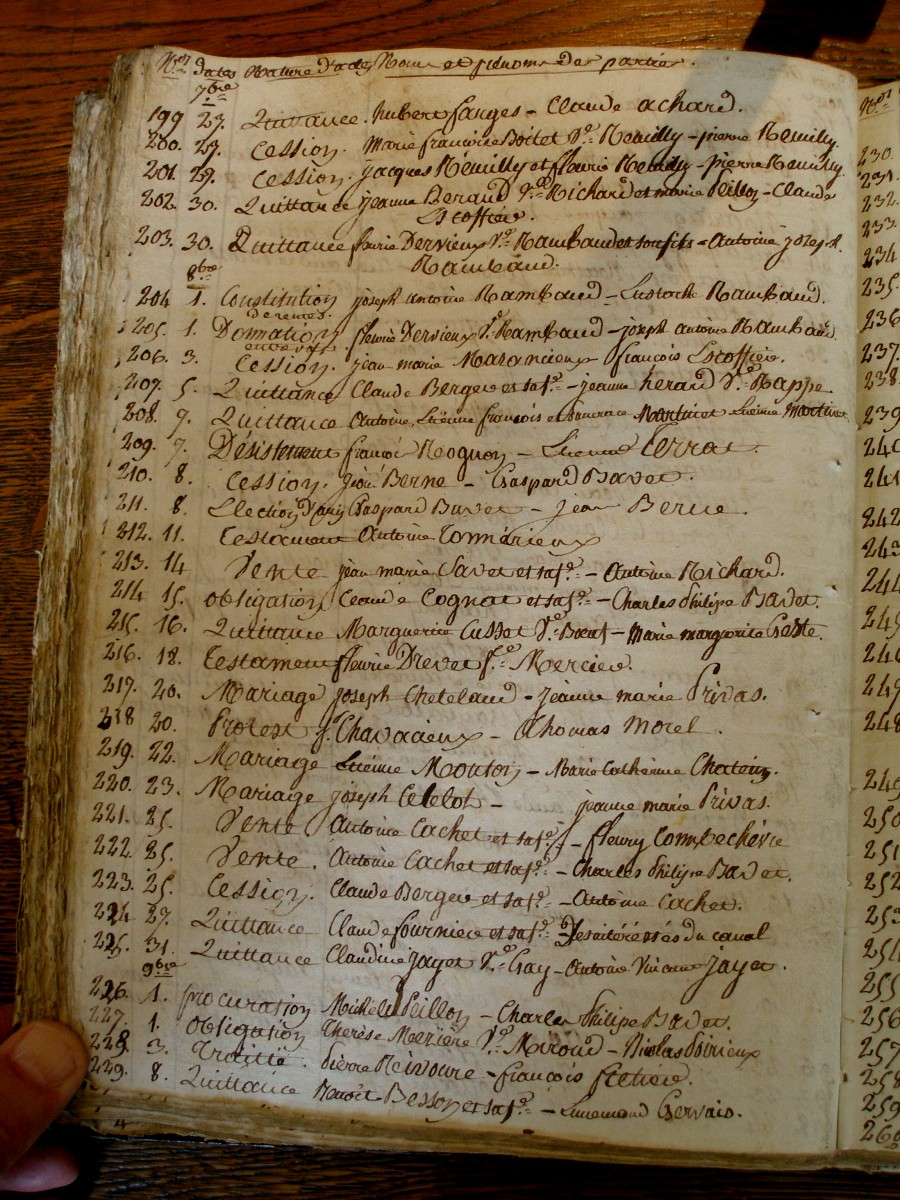 Nos dates Nature d'actes Noms et prénoms des parties.
7bre
199 27. Quittance. hubert farges - Claude achard.
200. 29. Cession. Marie françoise Boitet Ve. Neuilly - pierre Neuilly.
201. 29. Cession. jacques Neuilly et fleurie Neuilly - pierre Neuilly
202. 30. Quittance jeanne Beraud Ve. Richard et marie Peillon - Claude
Escoffier.
203. 30. Quittance fleurie Dervieux Ve. Rambaud et son fils - Antoine joseph
Rambaud.
8bre
204 1. Constitution joseph antoine Rambaud - Eustache Rambaud.
de rentes.
205. 1. Donnation fleurie Dervieux Ve. Rambaud - joseph antoine Rambaud.
entre vifs
206. 3. Cession. jean marie Mazancieux françois Escoffier.
207. 5. Quittance Claude Berger et sa fe. - jeanne heraud Ve. Rappe
208. 7. Quittance Antoine, Etienne françois et Martinot Etienne Martinot
209. 7. Désistement françois Rognon - Etienne Terrat.
210. 8. Cession. jean Berne - Gaspard Bavet.
211. 8. Election d'amy Gaspard Bavet - jean Berne.
212. 11. Testament Antoine Commérieux
213. 14 Vente jean marie Savet et sa fe. - Antoine Richard.
214 15. obligation Claude Cognat et sa fe. - Charles Philipe Badet.
215. 16. Quittance Marguerite Cusset Ve. Bœuf - Marie marguerite Coste.
216. 18. Testament fleurie Drevet fe. Mercier.
217. 20. Mariage joseph Chetelaud - jeanne marie Privas.
218 20. Protest f. Chavacieux - Thomas Morel.
219. 22. Mariage Etienne Mouton - Marie Catherine Chatein.
220. 23. Mariage joseph Celelot - jeanne marie Privas.
221. 25. Vente Antoine Cachet et sa fe. - fleury Combechérie
222. 25. Vente. Antoine Cachet et sa fe. - Charles Philipe Badet.
223. 25. Cession. Claude Berger et sa fe. - Antoine Cachet.
224 27. Quittance Claude fourniere et sa fe. - Les intéressés du canal
225. 31. Quittance Claudine jayet Ve. Gay - Antoine Vincent jayet.
9bre
226. 1. procuration Michel Peillon - Charles Philipe Badet.
227. 1. Obligation Therèse Mezïere Ve. Miroud - Nicolas Poirieux
228. 3. Traitté. Pierre Reivoure - françois fretiere.
229. 8. Quittance Benoit Besson et sa fe. - Ennemond Gervais.
230
231.
232.
233.
234
235.
236
237.
238.
239
240
241
242
243
244
245
246
247
248
249
250
251
252
253
254
255
256
257
258
259
260